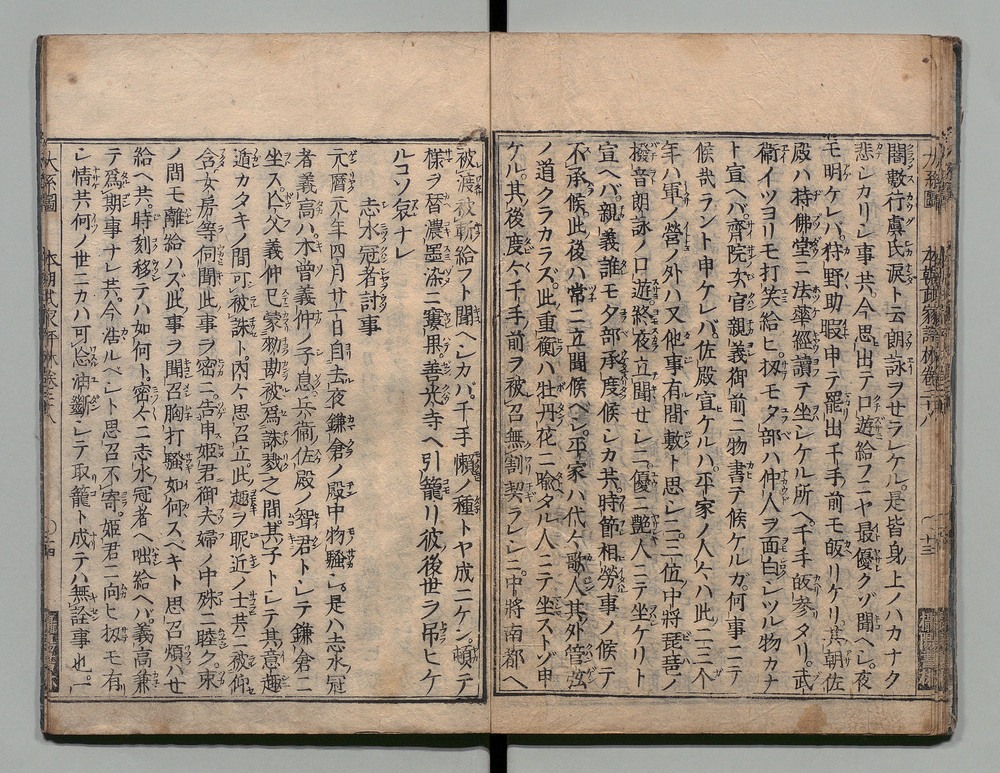 闇數行虞氏涙ト云朗詠ヲセラレケル是皆身上ノハカナク
悲シカリシ事共今思出テ口遊給フニヤ最優クゾ聞ヘシ夜
モ明ケレバ狩野助暇申テ罷出千手前モ皈リケリ其朝佐
殿ハ持佛堂ニ法華經讀テ坐シケル所ヘ千手皈參タリ武
衞イツヨリモ打笑給ヒ扨モタ部ハ仲人ヲ面白シツル物カナ
ト宣ヘバ齊院次官親義御前ニ物書テ候ケルガ何事ニニテ
候哉ラント申ケレバ佐殿宣ケルハ平家ノ人々ハ此二三个
年ハ軍ノ營ノ外ハ又他事有間敷ト思シニ三位中將琵琶ノ
撥音朗詠ノ口遊終夜立聞セシニ優ニ艶人ニテ坐ケリト
宣ヘバ親義誰モタ部承度候シカ共時節相勞事ノ候テ
不承候此後ハ常ニ立聞候ヘシ平家ハ代々歌人其外管弦
ノ道クラカラズ此重衡ハ牡丹花ニ喩タル人ニテ坐ストゾ申
ケル其後度々千手前ヲ被召無割契ラレシニ中將南都ヘ
被渡被斬給フト聞ヘシカバ千手懶ノ種トヤ成ニケン頓テ
樣ヲ替濃墨染ニ褱果善光寺ヘ引籠リ彼後世ヲ吊ヒケ
ルコソ哀ナレ
志水冠者討事
元暦元年四月廿一日自去夜鎌倉ノ殿中物騷シ是ハ志水冠
者義高ハ木曾義仲ノ子息兵衞佐殿ノ聟君トシテ鎌倉ニ
坐ス父義仲已蒙勅勘被爲誅戮之間其子トシテ其意趣
遁カタキノ間可被誅ト内々思召立此趣ヲ昵近ノ士共ニ被仰
含女房等伺聞此事ヲ密ニ告申姫君御夫婦ノ中殊ニ睦ク束
ノ間モ離給ハズ此事ヲ聞召胸打騷如何スヘキト思召煩ハせ
給ヘ共時刻移テハ如何ト密々ニ志水冠者ヘ咄給ヘバ義高兼
テ爲期事ナレ共今浩ルベシト思召不寄姫君ニ向ヒ扨モ有
シ情共何ノ世ニカハ可忘油斷シテ取籠ト成テハ無詮事也一